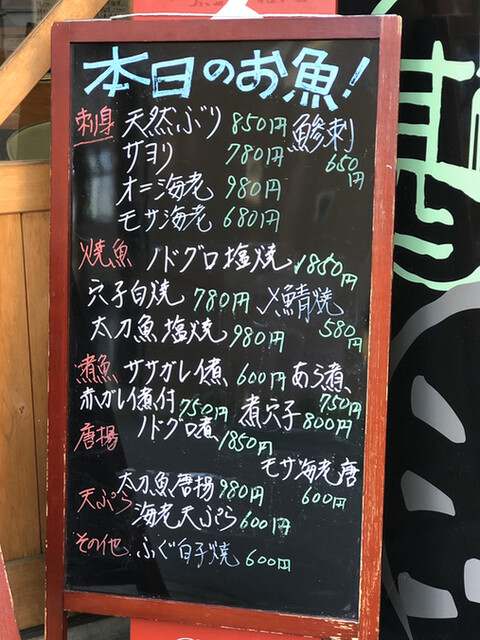 本日のお魚!
刺身 天然ぶり 850円 鯵刺 650円
サヨリ 780円
オニ海老 980円
モサ海老 680円
焼魚 ノドグロ塩焼 1850円
穴子白焼 780円 〆鯖焼 580円
太刀魚塩焼 980円
煮魚 ササガレイ煮 600円 あら煮 750円
赤ガレイ煮付 750円 煮穴子 800円
ノドグロ煮 1850円
唐揚 モサ海老唐 600円
太刀魚唐揚 980円
天ぷら 海老天ぷら 600円
その他 ふぐ白子焼 600円